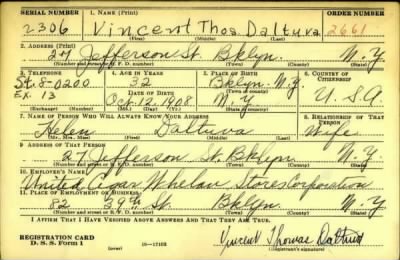 SERIAL NUMBER 1. NAME (Print) ORDER NUMBER
2306 Vincent Thos. Daltuva 2661
(First) (Middle) (Last)
2. ADDRESS (Print)
27 Jefferson St. Bklyn. N.Y.
(Number and street or R. F. D. number) (Town) (County) (State)
3. TELEPHONE 4. AGE IN YEARS 5. PLACE OF BIRTH 6. COUNTRY OF CITIZENSHIP
St. 8-0200 32 Bklyn. N.Y.
Ex. 13 DATE OF BIRTH (Town or county)
Oct. 12. 1908 N.Y. U.S.A
(Exchange) (Number) (Mo.) (Day) (Yr.) (State or country)
7. NAME OF PERSON WHO WILL ALWAYS KNOW YOUR ADDRESS 8. RELATIONSHIP OF THAT PERSON
Helen Daltuva Wife
(Mr., Mrs., Miss) (First) (Middle) (Last)
9. ADDRESS OF THAT PERSON
27 Jefferson St. Bklyn. N.Y.
(Number and street or R. F. D. number) (Town) (County) (State)
10. EMPLOYER'S NAME
United Cigar Whelan Stores Corporation
11. PLACE OF EMPLOYMENT OR BUSINESS
82 39th St. Bklyn. N.Y.
(Number and street or R. F. D. number) (Town) (County) (State)
I AFFIRM THAT I HAVE VERIFIED ABOVE ANSWERS AND THAT THEY ARE TRUE.
REGISTRATION CARD
D. S. S. Form 1 (over) 16—17105 Vincent Thomas Daltuva
(Registrant's signature)